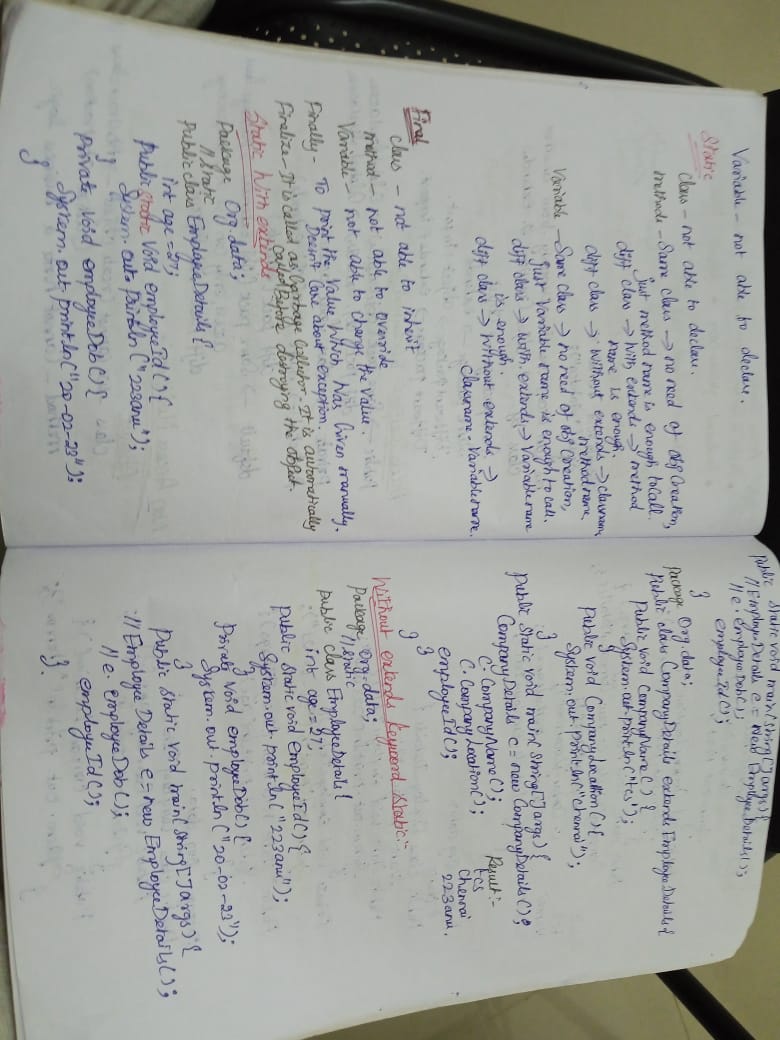 Variable - not able to declare.
Static
class - not able to declare.
methods - Same class → no need of obj Creation,
just method name is enough to call.
diff class → with extends → method
name is enough.
diff class → without extends → classname
methodname
Variable - Same class → no need of obj Creation,
just Variable name is enough to call.
diff class → with extends → Variable name
is enough.
diff class → without extends →
classname. Variablename.
Final
class - not able to inherit
method - not able to override
Variable - not able to change the Value.
Finally - To print the Value which was Given manually.
Doesn't Care about exception.
Finalize - It is called as Garbage Collector. It is automatically
called Before destroying the object.
Static With extends
Package Org.data;
//static
Public class EmployeeDetails {
int age = 27;
Public static Void employeeId() {
System.out.Println ("223anu");
}
Private Void employeeDob() {
System.out.println("20-02-23");
}
Public static void main(String[]args) {
//EmployeeDetails e = New EmployeeDetails();
//e.employeeDob();
employeeId();
}
Package Org.data;
Public class CompanyDetails extends EmployeeDetails {
Public void CompanyName() {
System.out.println("tcs");
}
Public void CompanyLocation() {
System.out.println("Chennai");
}
Public static void main(String[]args) {
CompanyDetails c = new CompanyDetails();
C.CompanyName();
C.CompanyLocation();
employeeId();
}
}
Result:-
tcs
Chennai
223anu.
Without extends Keyword Static:-
Package Org.data;
//static
Public class EmployeeDetails {
int age = 27;
Public static void employeeId() {
System.out.println("223anu");
}
Private Void employeeDob() {
System.out.println("20-02-23");
}
Public static void main(String[]args) {
//Employee Details e = new EmployeeDetails();
//e.employeeDob();
employeeId();
}